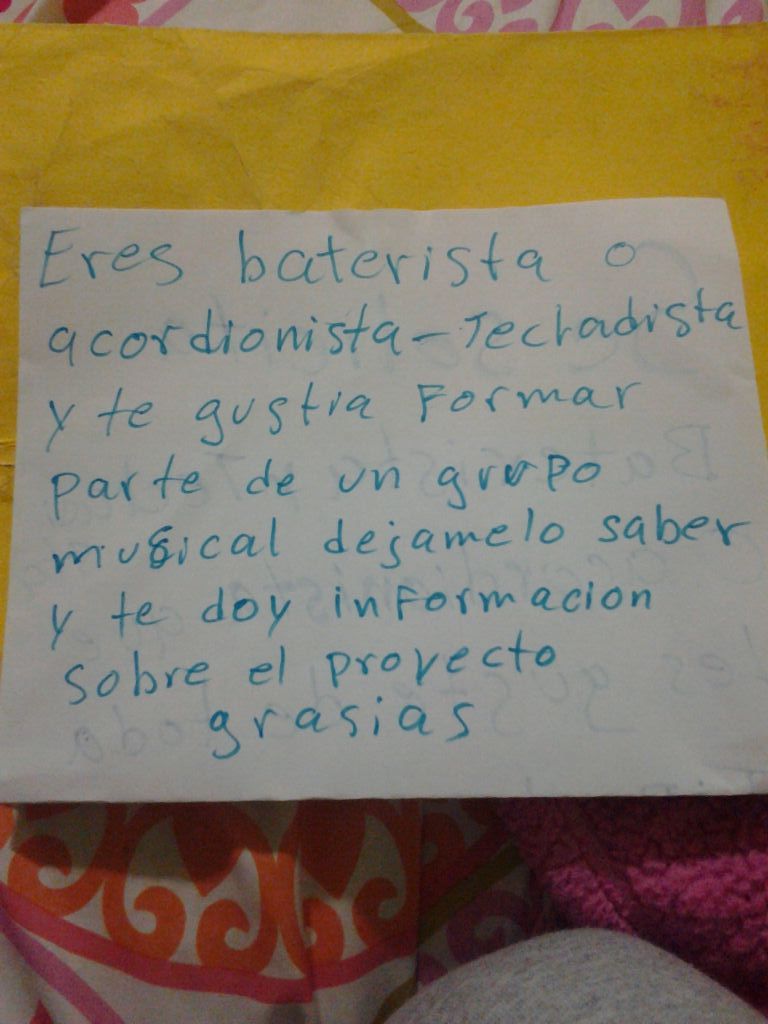 Eres baterista o
acordionista - Techadista
y te gustria Formar
parte de un grupo
musical dejamelo saber
y te doy informacion
sobre el proyecto
grasias